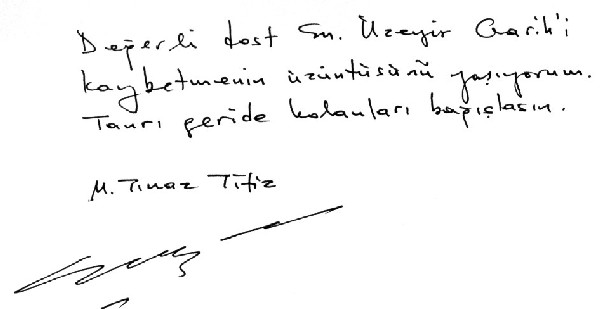 Değerli dost Sn. Üzeyir Garih'i
kaybetmenin üzüntüsünü yaşıyorum.
Tanrı geride kalanları bağışlasın.
M. Tınaz Titiz